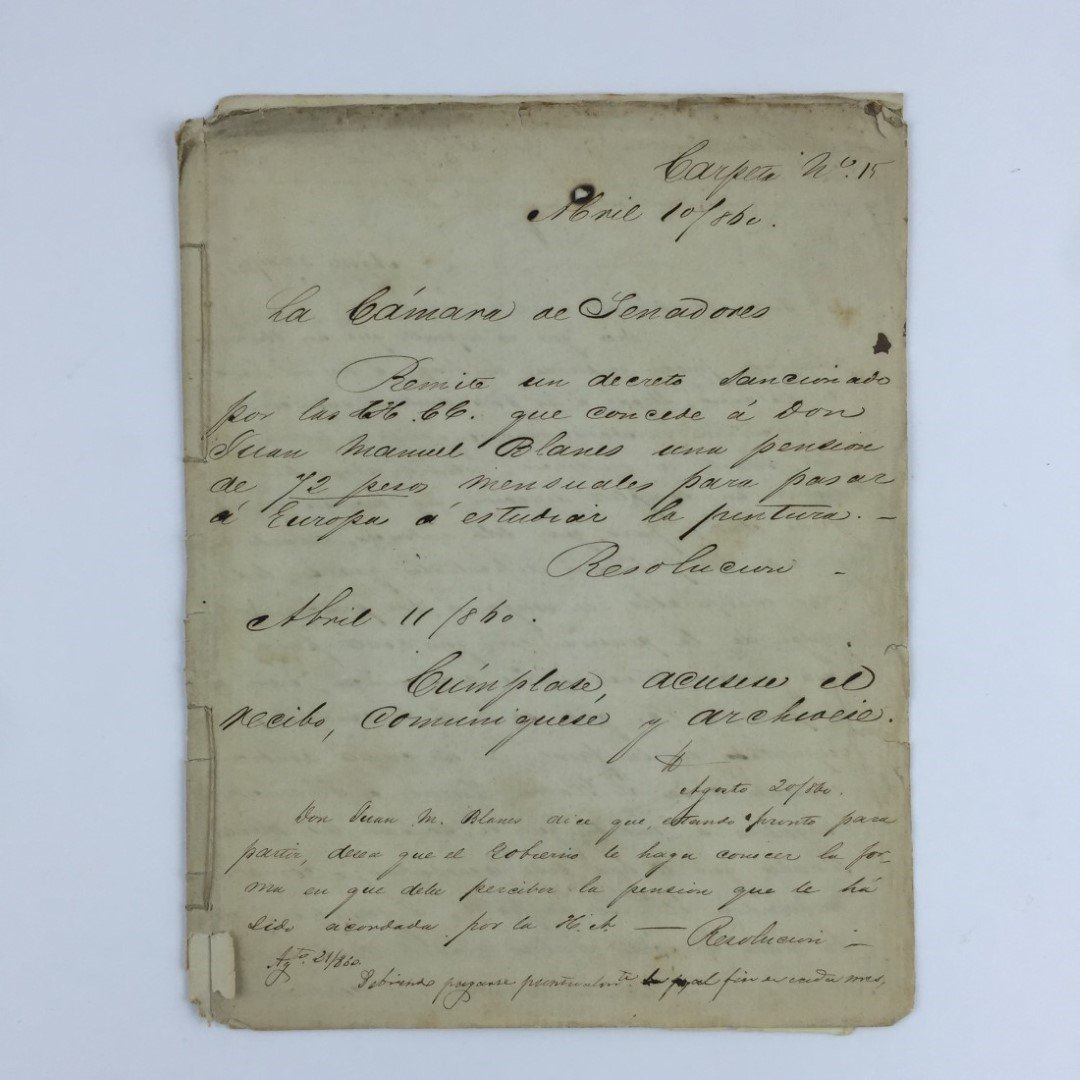 Carpeta Nº. 15
Abril 10/860.
La Cámara de Senadores
Remite un decreto sancionado
por las HH. CC. que concede á Don
Juan Manuel Blanes una pension
de 72 pesos mensuales para pasar
á Europa á estudiar la pintura. —
Resolucion —
Abril 11/860.
Cúmplase, acusese el
recibo, comuniquese y archivese.
Agosto 20/860.
Don Juan M. Blanes dice que, estando pronto para
partir, desea que el Gobierno le haga conocer la for-
ma en que debe percibir la pension que le há
sido acordada por la H. A — Resolucion —
Agto. 21/860.
Debiendo pagarse puntualmte. al fin de cada mes,